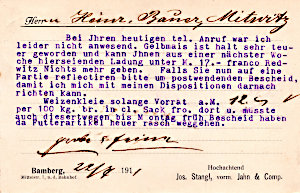 Herrn Heinr. Bauer, Mitwitz
Bei Jhren heutigen tel. Anruf war ich
leider nicht anwesend. Gelbmais ist halt sehr teu-
er geworden und kann Jhnen aus einer nächster wo-
che hierseienden Ladung unter M. 17.- franco Red-
witz Nichts mehr geben. Falls Sie nun auf eine
Partie reflectiren bitte um postwendenden Bescheid,
damit ich mit meinen Dispositionen darnach
richten kann.
Weizenkleie solange Vorrat a M. 12.
per 100 kg. br. in cl. Sack fro. dort u. müsste
auch dieserwegen bis Montag früh Bescheid haben
da Futterartikel heuer rasch weggehen.
Bamberg, 22/8 191
Mittelstr. 1, a. d. Bahnhof
Hochachtend
Jos. Stangl, vorm. Jahn & Comp.